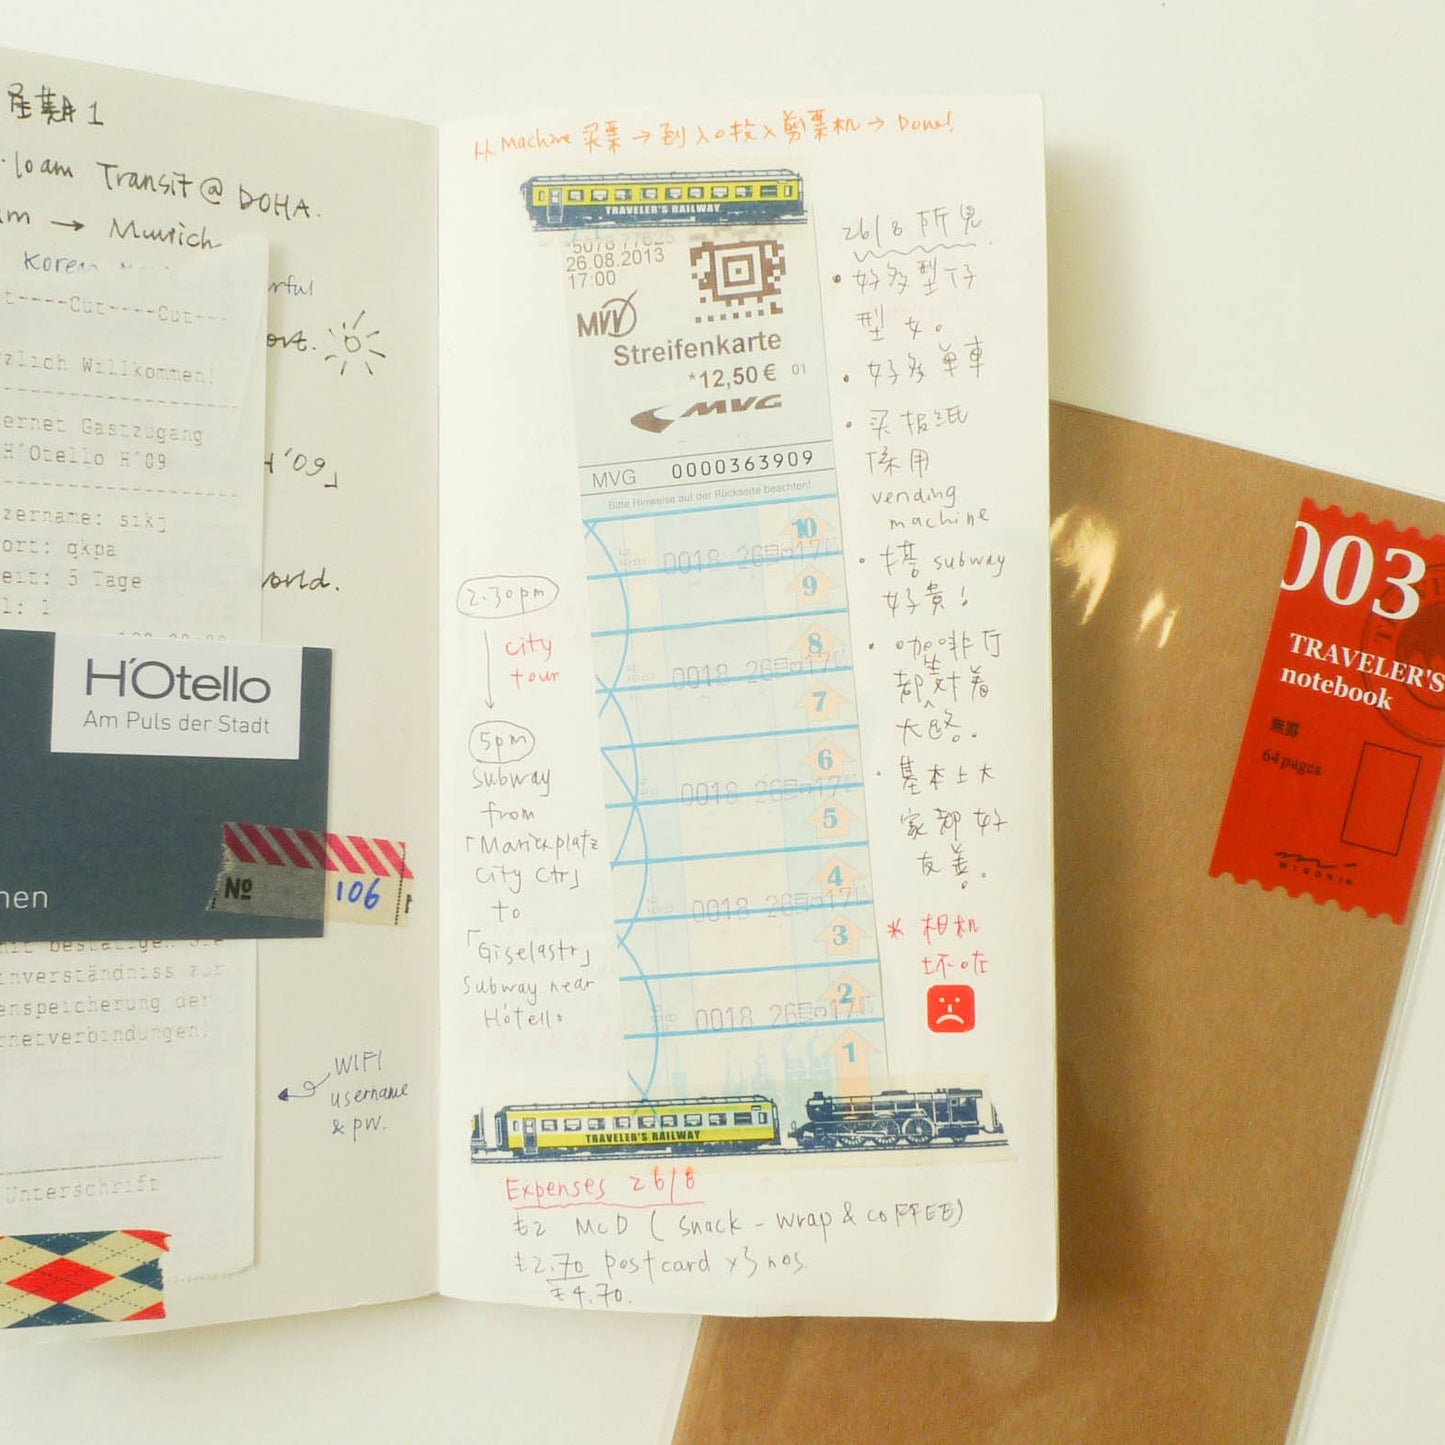 星期1
10am Transit @ DOHA.
am → Munich
Korean
rful
----Cut----Cut---
ort.
zlich Willkommen!
ernet Gastzugang
H'Otello H'09
H'09」
zername: sikj
ort: qkpa
eit: 5 Tage
l: 1
world.
H'Otello
Am Puls der Stadt
nen
Nº 106
mit bestätigen Sie
inverständniss zur
enspeicherung der
rnetverbindungen!
WIFI
username
& pw.
Unterschrift
从 Machine 买票 → 到入口较入剪票机 → Done!
TRAVELER'S RAILWAY
26.08.2013
17:00
MVV
Streifenkarte
*12,50 € 01
MVG
MVG 0000363909
Bitte Hinweise auf der Rückseite beachten!
10
0018 26
9
8
0018 26
7
6
0018 26
5
4
0018 26
3
2
0018 26
1
2.30pm
city
tour
5pm
Subway
from
「Marienplatz
City Ctr」
to
「Giselastr」
Subway near
H'otello
26/8 所見
• 好多型仔
型女。
• 好多單車
• 买报纸
係用
vending
machine
• 搭 subway
好貴!
• 咖啡厅
都對着
大路.
• 基本上大
家都好
友善.
* 相机
坏咗
TRAVELER'S RAILWAY
Expenses 26/8
€2 McD ( Snack - wrap & COFFEE)
€2.70 postcard x 3 nos.
€4.70.
003
TRAVELER'S
notebook
無罫
64 pages
MIDORI